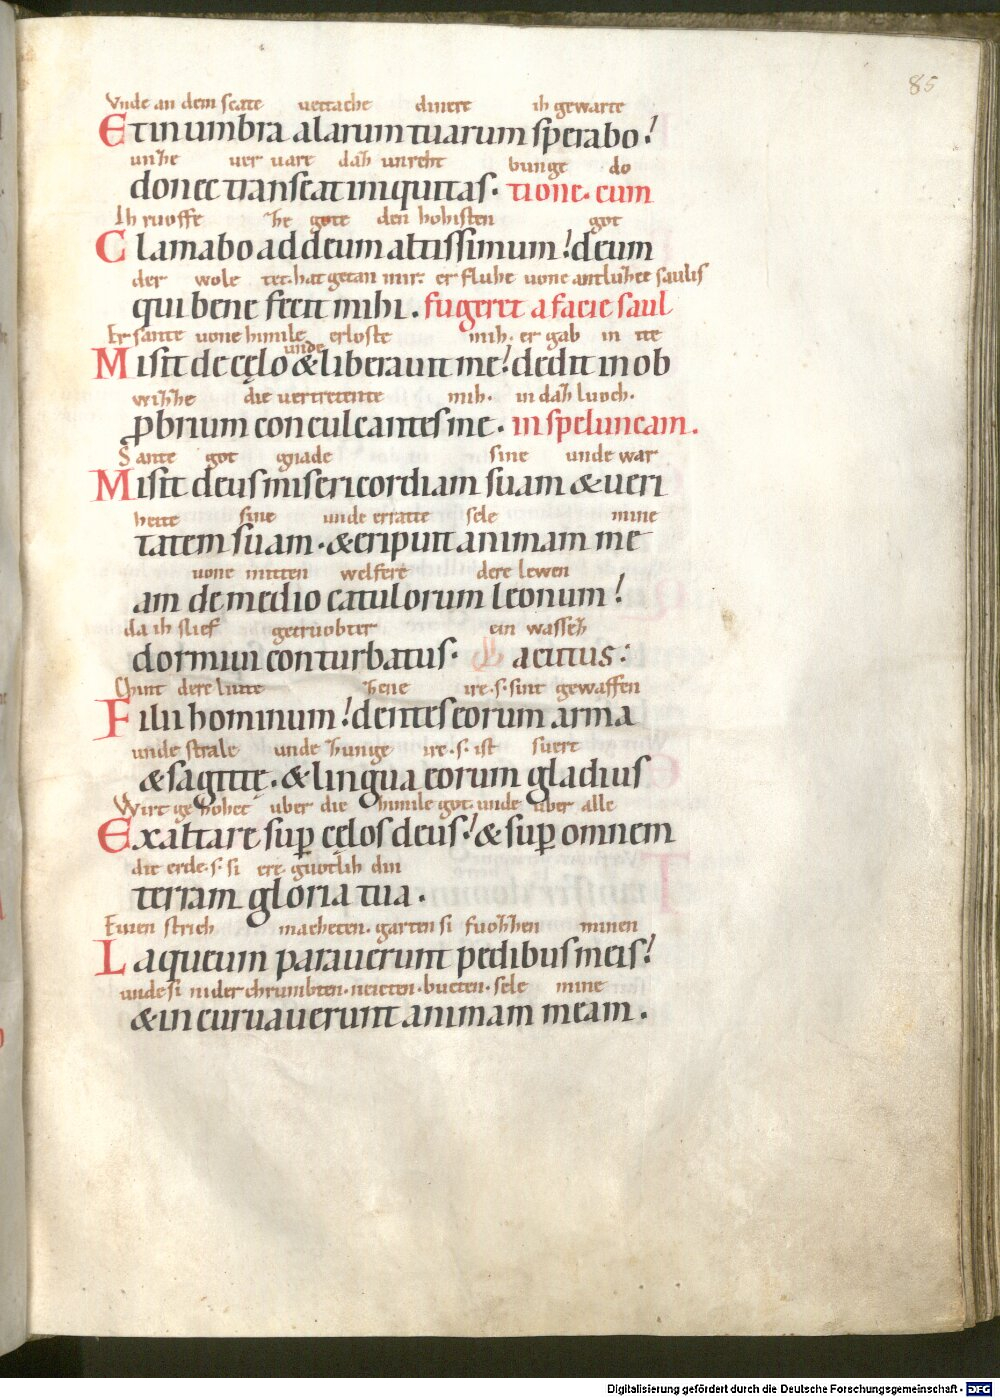 85
Vnde an dem scate uettache dinere ih gewarte
Et in umbra alarum tuarum sperabo!
unhe uer uare dah unreht bunge do
donec transeat iniquitas. tione. cum
Ih ruoffe ze gote den hohisten got
Clamabo ad deum altissimum! deum
der wole tet. hat getan mir. er fluhe uone antluhee saulis
qui bene fecit mihi. fugeret a facie saul
Er sante uone himile unde erloste mih. er gab in ite
Misit de cęlo & liberauit me! dedit in ob
wihhe die uertretente mih. in dah luoch.
p̱brium conculcantes me. in speluncam.
Sante got gnade sine unde war
Misit deus misericordiam suam & ueri
heite sine unde erratte sele mine
tatem suam. & eripuit animam me
uone mitten welfere dere lewen
am de medio catulorum leonum!
da ih slief getruobter ein wasseh
dormiui conturbatus. acutus:
Chint dere liute zene ire. s. sint gewaffen
Filii hominum! dentes eorum arma
unde strale unde zunge ire. s. ist suert
& sagittę. & lingua eorum gladius
Wirt gehohet uber die himile got. unde uber alle
Exaltare sup̱ cęlos deus! & sup̱ omnem
die erde. s. si ere. guotlih din
terram gloria tua.
Einen strich macheten. garten si fuohhen minen
Laqueum parauerunt pedibus meis!
unde si niderchrumbten. neicten. bucten. sele mine
& incuruauerunt animam meam.
Digitalisierung gefördert durch die Deutsche Forschungsgemeinschaft - DFG